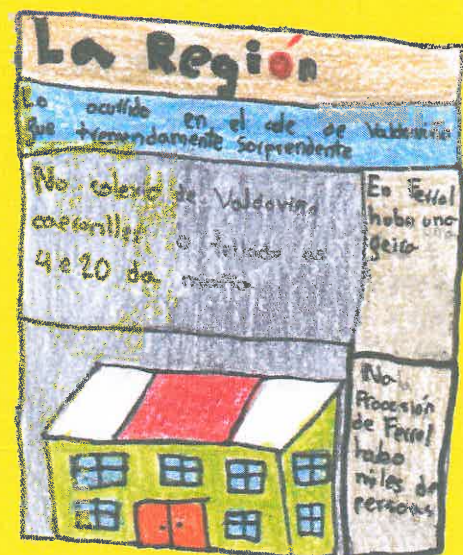 La Región
Lo ocurrido en el cole de Valdoviño
fue tremendamente sorprendente
No colexio de Valdoviño
o tellado as
4 e 20 da
En Ferrol
hubo una
No
Procesión
de Ferrol
hubo
miles de
personas